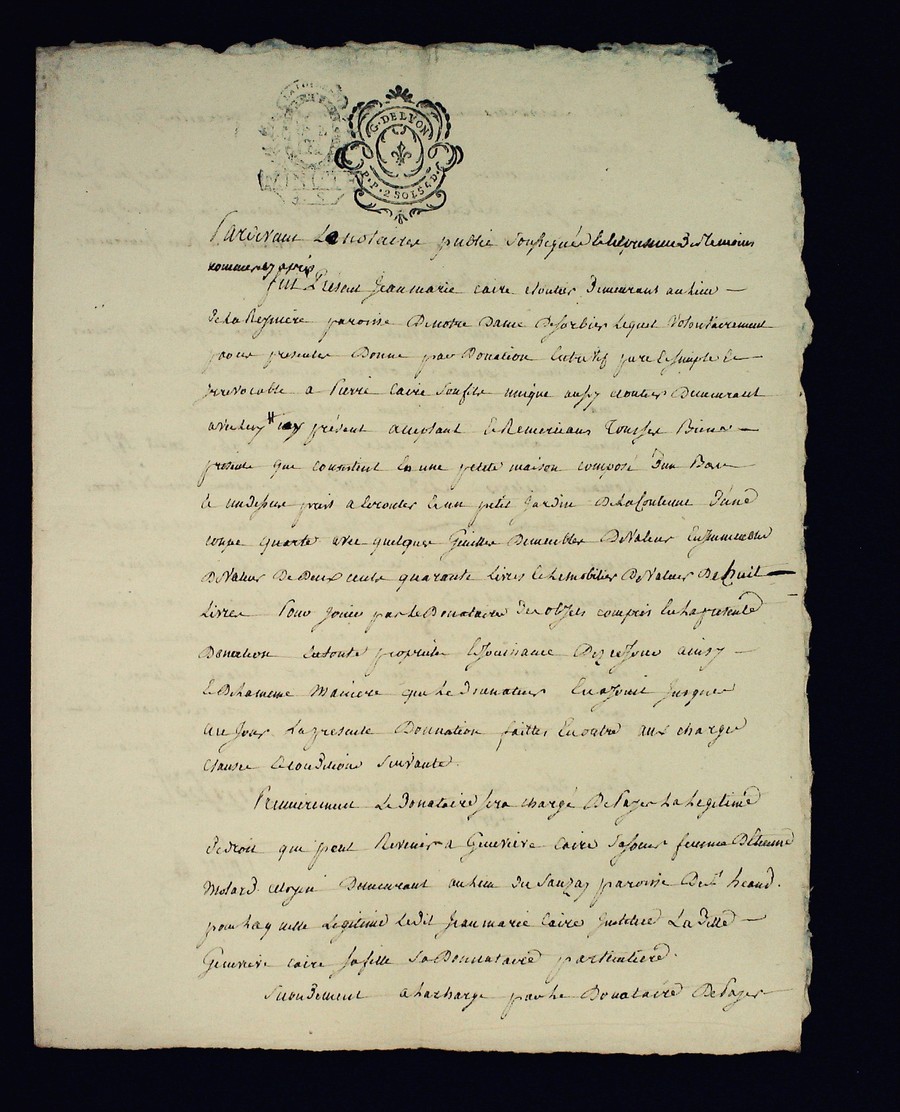 G. DE LYON
P.P. 2 SOLS 4 D.
Pardevant Le notaire public Soussigné Et En presence Des temoins
nommes cy apres
fut Présent Jean marie Caire cloutier Demeurant au lieu
De La Reyniere paroisse De notre Dame De Sorbier Lequel Volontairement
par ces presentes Donne par Donation Entre vif pure Et Simple Et
irrevocable a Pierre Caire Son fils unique aussy cloutier Demeurant
avec luy icy présent acceptant Et Remerciant Tous ses Biens
presents que consistent En une petite maison composé D'un Bas
Et un dessus Et un petit Jardin De La Contenue D'une
coupe quarte avec quelques Meubles De Valeur Les Immeubles
De Valeur De Deux cents quarante Livres Et Le mobilier De Valeur De huit
Livres Pour Jouir par Le Donataire Des objets compris En La presente
Donation En toute propriété Et Jouissance Dez ce Jour ainsy
Et De La meme Maniere que Le Donateur En a Jouit Jusques
a ce Jour La presente Donnation faittes En outre aux charges
Clauses Et Conditions Suivantes.
Premierement Le Donataire Sera chargé De Payer La Legitime
De droit que peut Revenir a Genevieve Caire Sa Soeur femme D'Etienne
Motard citoyen Demeurant au lieu Du Sauzay paroisse De St heand.
pour Laquelle Legitime Ledit Jean marie Caire Institue La Ditte
Genevieve Caire Sa fille Sa Donnataire particuliere.
Secondement a La charge par Le Donataire De Payer